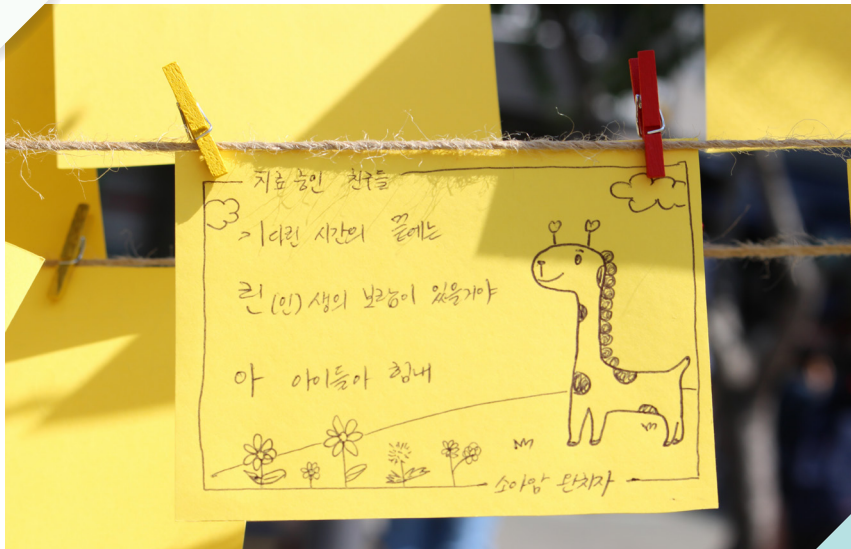 치료 중인 친구들
기다린 시간의 끝에는
린(인)생의 보람이 있을거야
아 아이들아 힘내
소아암 완치자